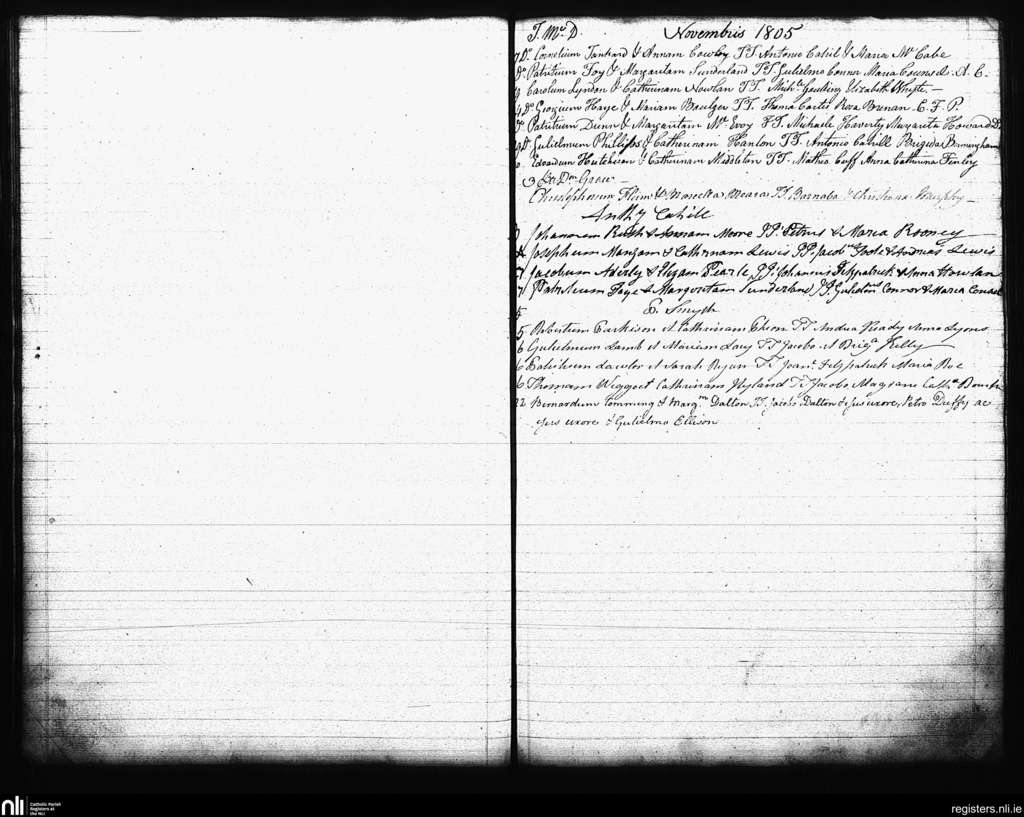 J. Mc. D. Novembris 1805
7 Do. Cornelium Tankard & Annam Cowley TT Antonio Cahil & Maria Mc Cabe
Do. Patritium Foy & Margaritam Sunderland TT Gulielmo Connor Maria A. C.
Carolum Lyndon & Catharinam Nowlan TT. Michle. Goulding Elizabeth Whyte. —
Do. Georgium Haye & Mariam Boulger TT. Thoma Curtis Rosa Brenan. C. F. P.
Do. Patritium Dunn & Margaritam Mc. Evoy TT. Michaele Haverty Margarita Howard
Do. Gulielmum Phillips & Catharinam Hanlon TT. Antonio Cahill Brigida Bermingham
Edvardum Hutchison & Catharinam Middleton TT. Matheo Caff Anna Catharina Finley
Christophorum & Meara TT. Barnaba & Christiana Murphy —
Anthy Cahill
Johannem Rush & Annam Moore PP. Petrus & Maria Rooney
Josephum Mangam & Catharinam Lewis PP. Jacobus Toole & Andreas Lewis
7 Jacobum Aderly & Elizam Pearle PP. Johannis Fitzpatrick & Anna Howlan
7 Patritium Foye & Margaritam Sunderland PP. Connor & Maria
E. Smyth
5 Robertum et Catharinam TT Andrea Ready Anna Lyons
6 Gulielmum Lamb et Mariam Lacy TT Jacobo et Brigd. Kelly
6 et Sarah Ryan TT Joan. Fitzpatrick Maria Roe
6 Thomam Wiggot Catharinam Hyland TT Jacobo Magrane Cathe.
22 Bernardum Comming & Margm. Dalton TT. Jacobo Dalton & ejus uxore, Petro Duffy ac
ejus uxore & Gulielmo Ellison
nli Catholic Parish
Registers at
the NLI
registers.nli.ie